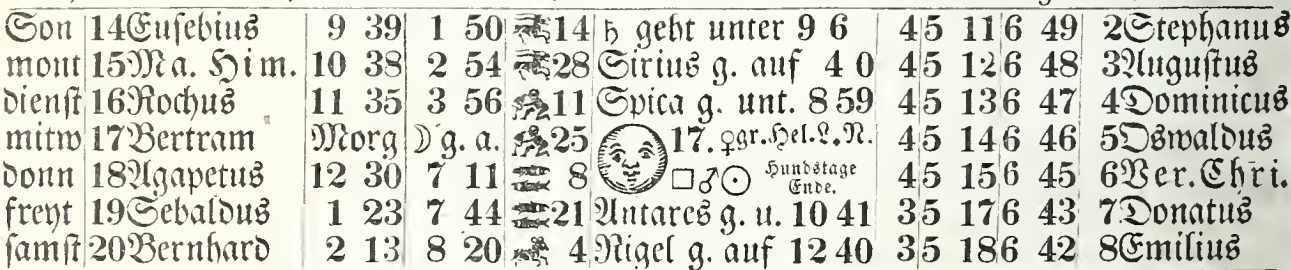 Son 14 Eusebius 9 39 1 50 14 ♄ geht unter 9 6 4 5 11 6 49 2 Stephanus
mont 15 Ma. Him. 10 38 2 54 28 Sirius g. auf 4 0 4 5 12 6 48 3 Augustus
dienst 16 Rochus 11 35 3 56 11 Spica g. unt. 8 59 4 5 13 6 47 4 Dominicus
mitw 17 Bertram Morg ☽ g. a. 25 17. ♀ gr. Hel. ☊. N. 4 5 14 6 46 5 Oswaldus
donn 18 Agapetus 12 30 7 11 8 □ ♂ ☉ Hundstage Ende. 4 5 15 6 45 6 Ver. Chri.
freyt 19 Sebaldus 1 23 7 44 21 Antares g. u. 10 41 3 5 17 6 43 7 Donatus
samst 20 Bernhard 2 13 8 20 4 Rigel g. auf 12 40 3 5 18 6 42 8 Emilius